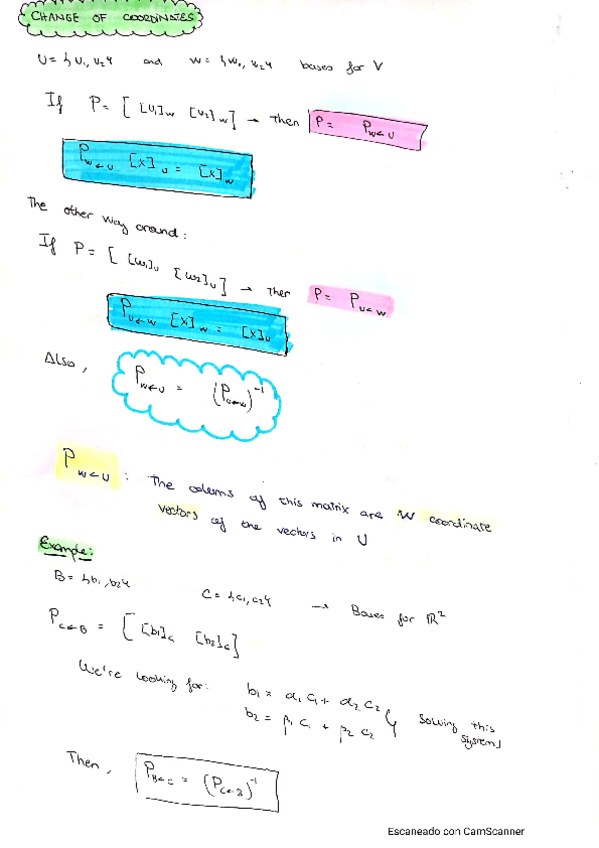 CHANGE OF COORDINATES
U = {u1, u2} and W = {w1, w2} bases for V
If P = [ [u1]w [u2]w ] → then P = P W←U
P W←U [x]U = [x]W
The other way around:
If P = [ [w1]U [w2]U ] → Then P = P U←W
P U←W [x]W = [x]U
Also, P W←U = (P U←W)⁻¹
P W←U : The colums of this matrix are W coordinate
vectors of the vectors in U
Example:
B = {b1, b2} C = {c1, c2} → Bases for ℝ²
P C←B = [ [b1]c [b2]c ]
We're looking for: b1 = α1 c1 + α2 c2
b2 = β1 c1 + β2 c2 } Solving this
system
Then, P B←C = (P C←B)⁻¹
Escaneado con CamScanner